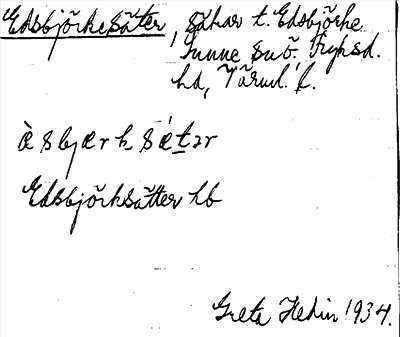 Edsbjörkesäter, säkar t. Edsbjörke
Sunne snö, Fryksd.
hd, Värml. l.
æ̀ s bjær k s ǽ t ər
Edsbjörksätter hb
Greta Hedin 1934.